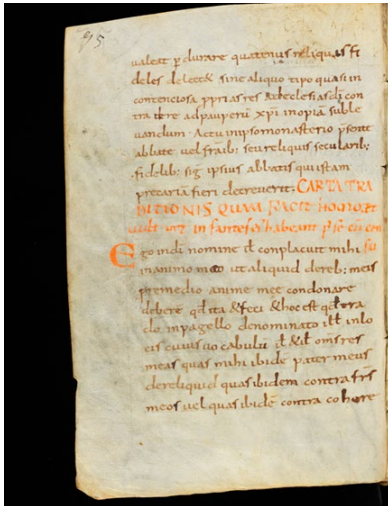 95
ualeat p durare quatenus reliquas fi
deles delectet sine aliquo tipo quasi in
contenciosa pprias res &ecclesias di con
tra dere ad pauperū xp̄i inopiā suble
uandum. Actū in ipso monasterio psente
abbate uel fratrib: seu reliquis secularib:
fidelib: sig ipsius abbatis qui istam
precariā fieri decreuerit. CARTA TRA
DITIONIS QUAM FACIT HOMO, ET
uult ut infantes habeant
Ego in di nomine ił conplacuit mihi
in animo meo ut aliquid de reb: meis
p remedio anime meę condonare
debere qd ita &feci &hoc est qd tra
do in pagello denominato ilł in lo
cis cuius uocabulū ił &ił om̄s res
meas quas mihi ibidē pater meus
dereliquid quas ibidem contra fr̄s
meos uel quas ibidē contra cohere